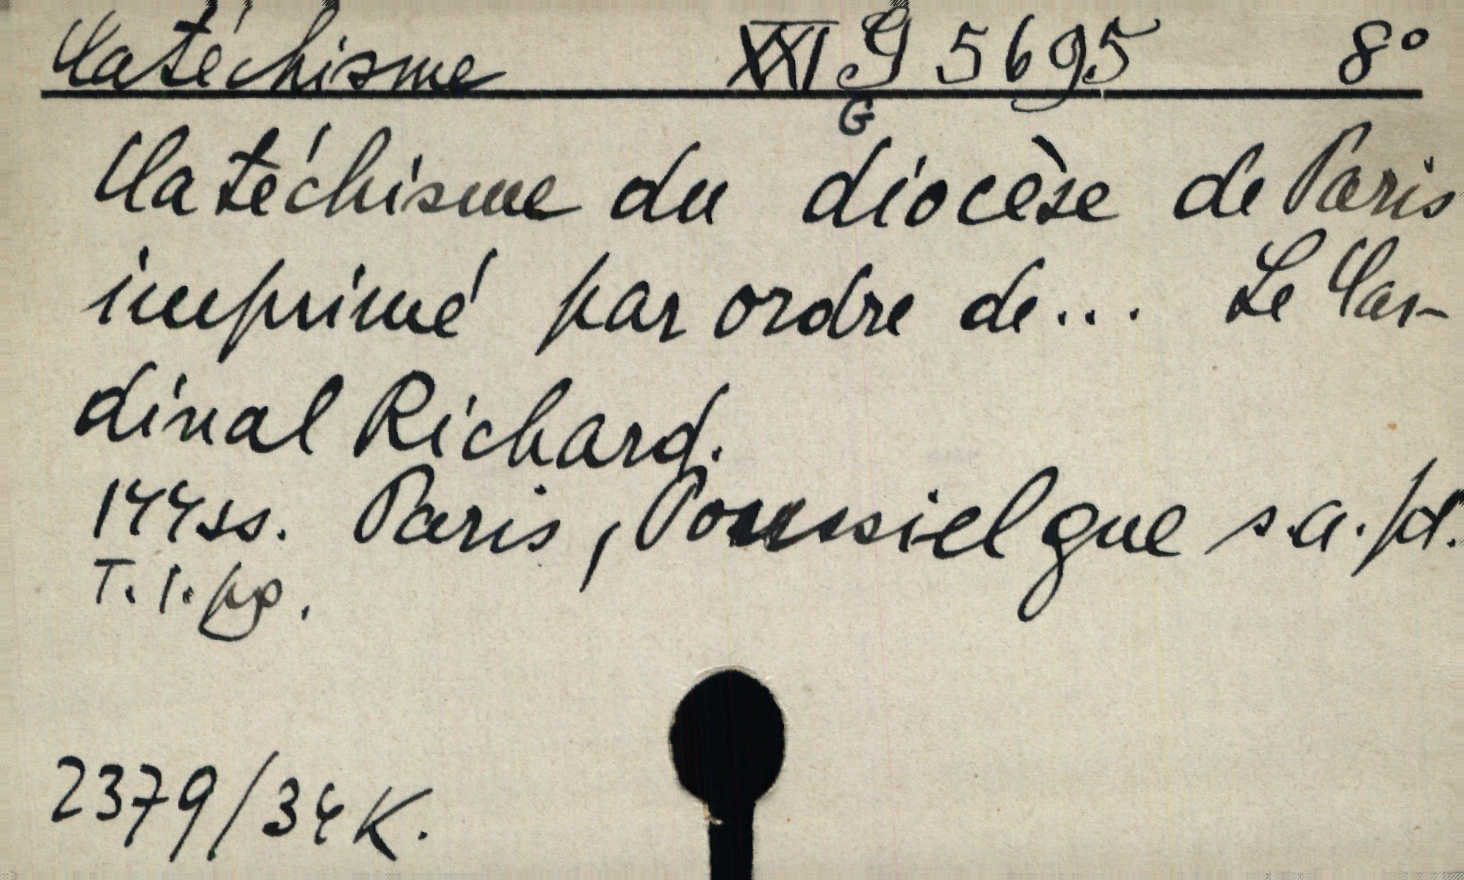 Catéchisme XXI G 5695 8°
G
Catéchisme du diocèse de Paris
imprimé par ordre de... Le Car-
dinal Richard.
144ss. Paris, Poussielgue s.a. pł.
T. 1. kp.
2379/34 K.